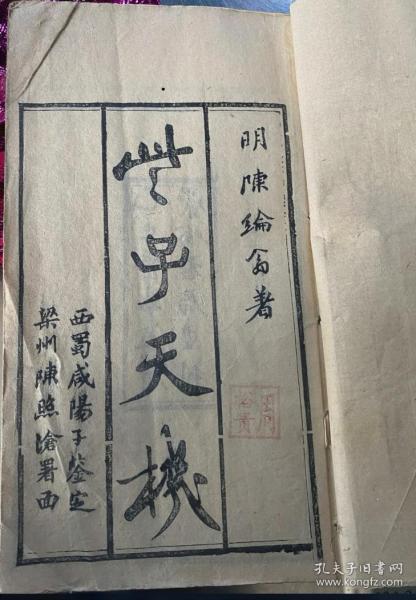 明陳綸翁著
些子天機
西蜀咸陽子鉴定
梁州陳照滄署面
孔夫子旧书网
www.kongfz.com